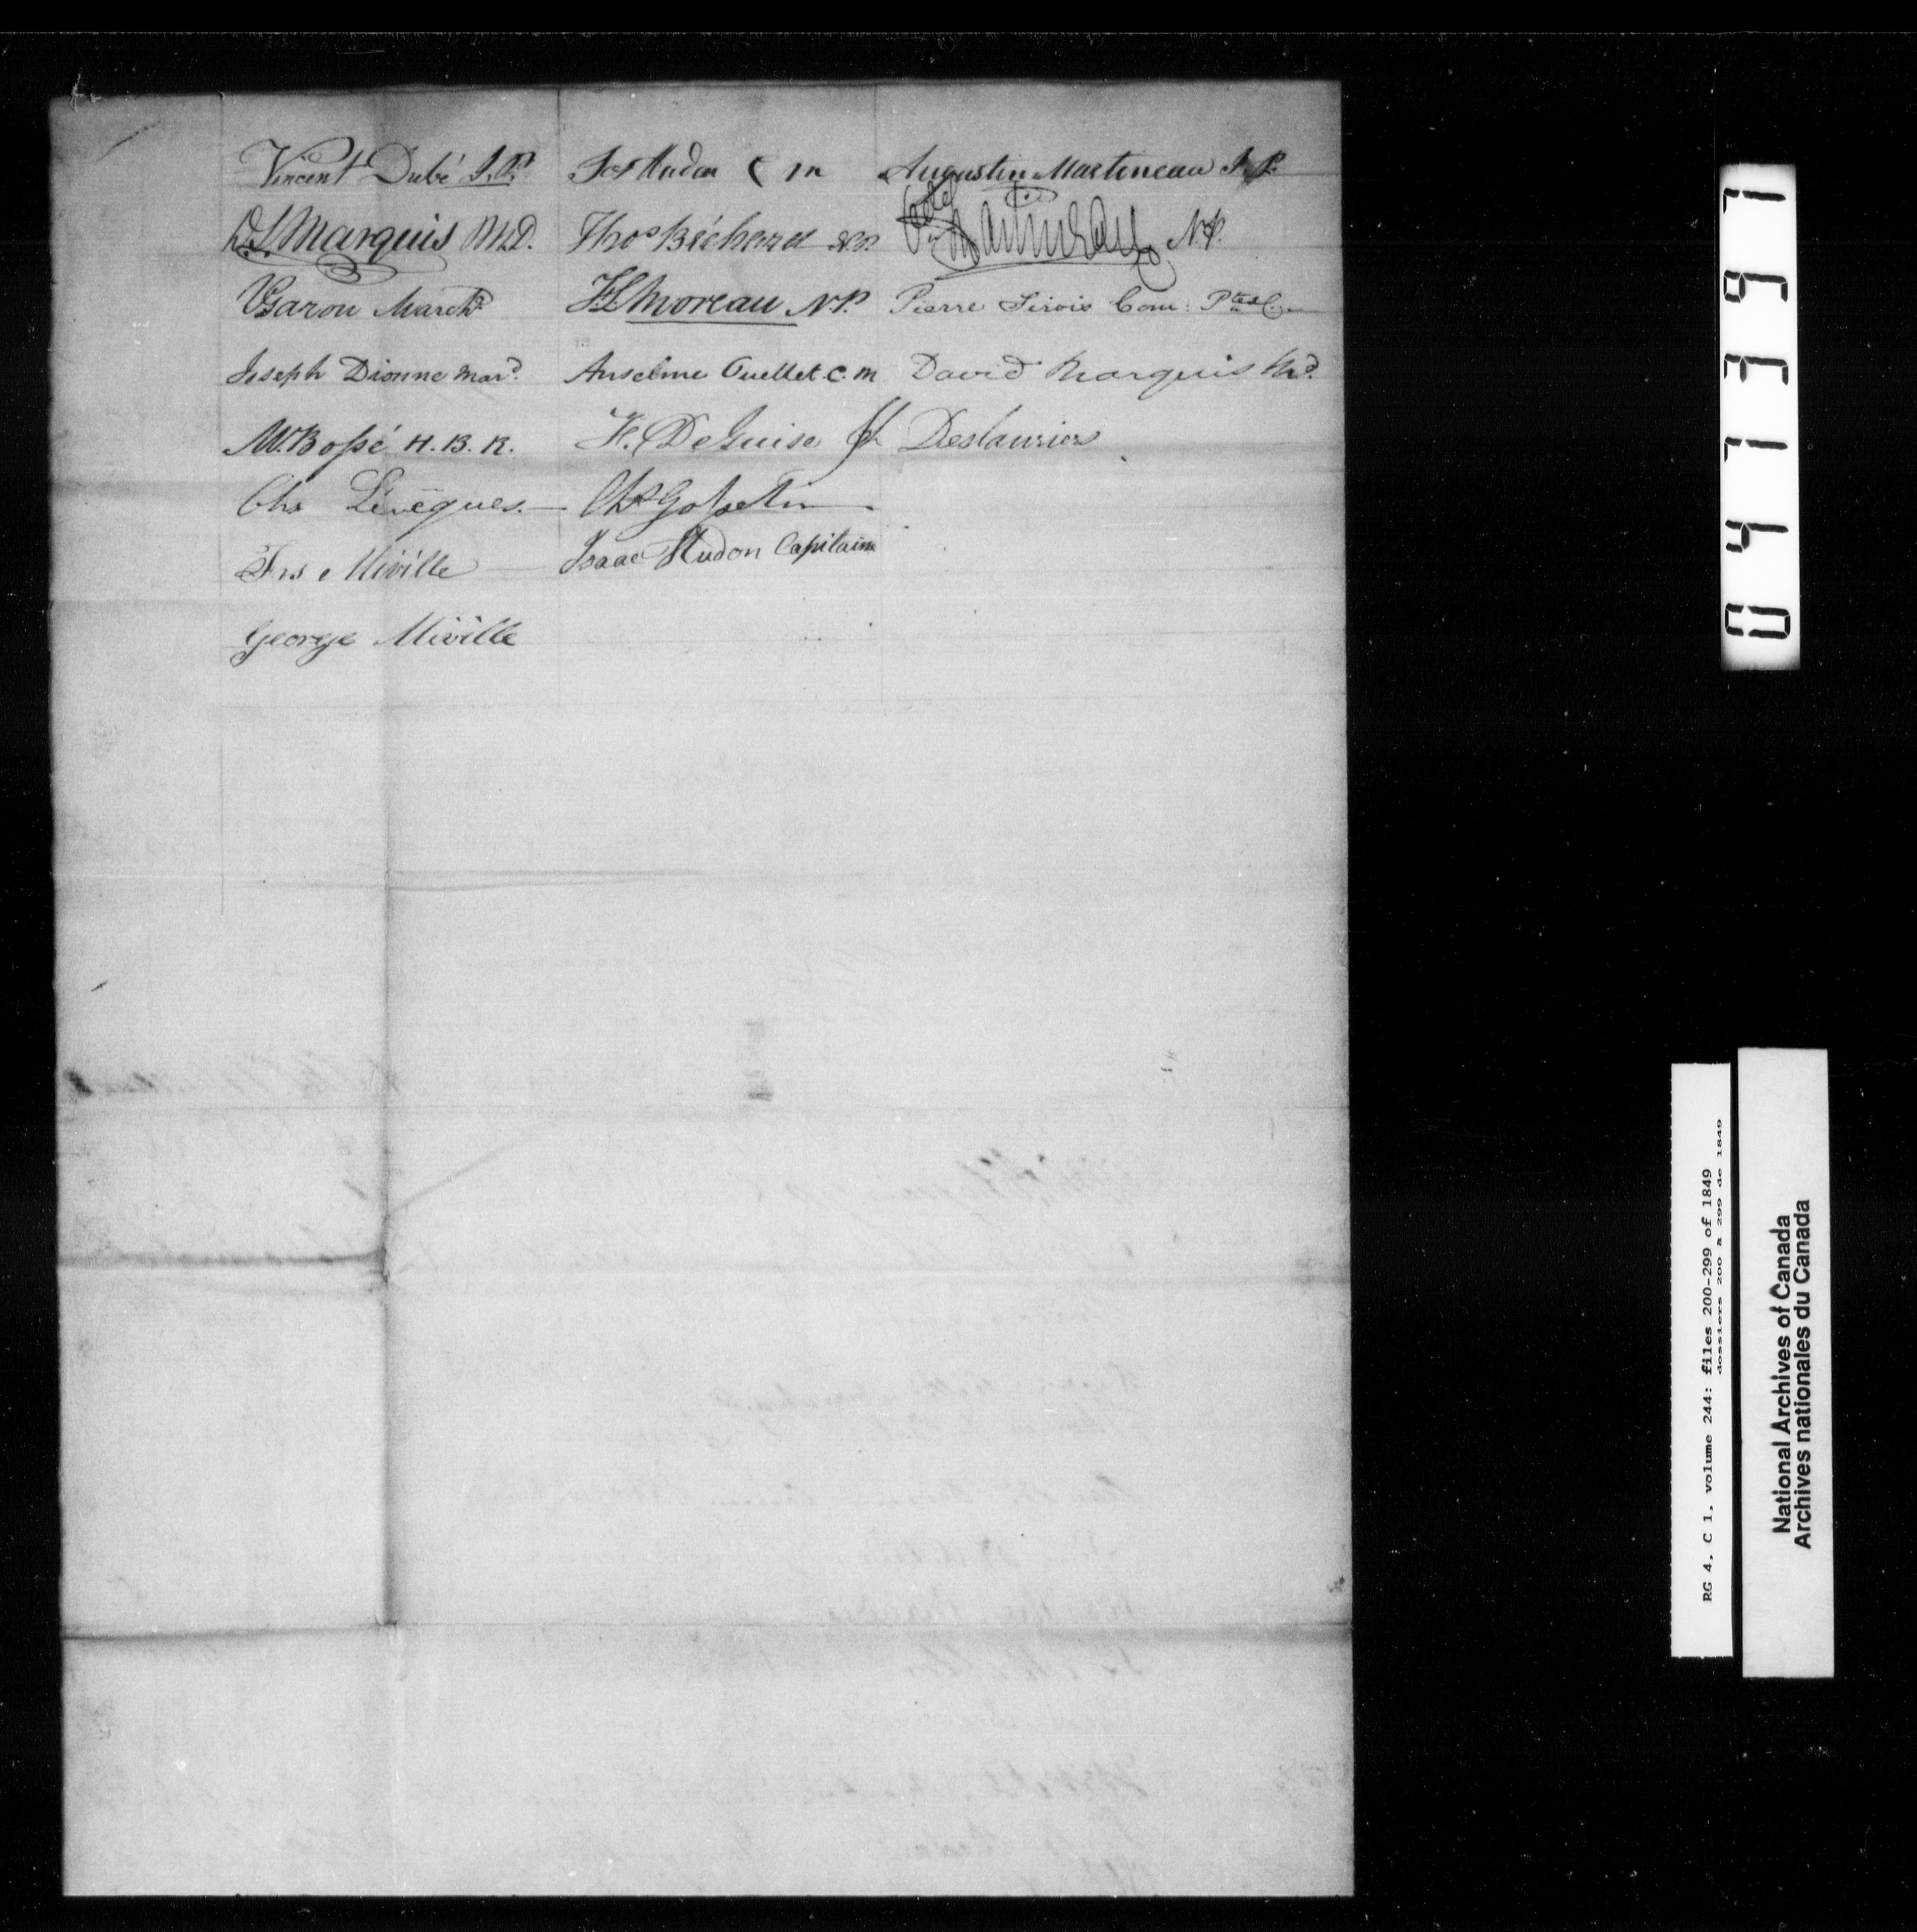 Vincent Dubé J.P.
L. Marquis M.D.
Garon March
Joseph Dionne Mard.
M. Bossé H. B. R.
Chs Lévêques.
Frs Miville
George Miville
Jos Hudon C M
Thos Béchard
Moreau N.P.
Anselme Ouellet C. M
H. DeGuise
Chs Gosselin
Isaac Hudon Capitaine
Augustin Martineau J. P.
Martineau N.P.
Pierre Sirois Com:
David Marquis Md.
Deslauriers
047397
RG 4, C 1, volume 244: files 200-299 of 1849
dossiers 200 à 299 de 1849
National Archives of Canada
Archives nationales du Canada